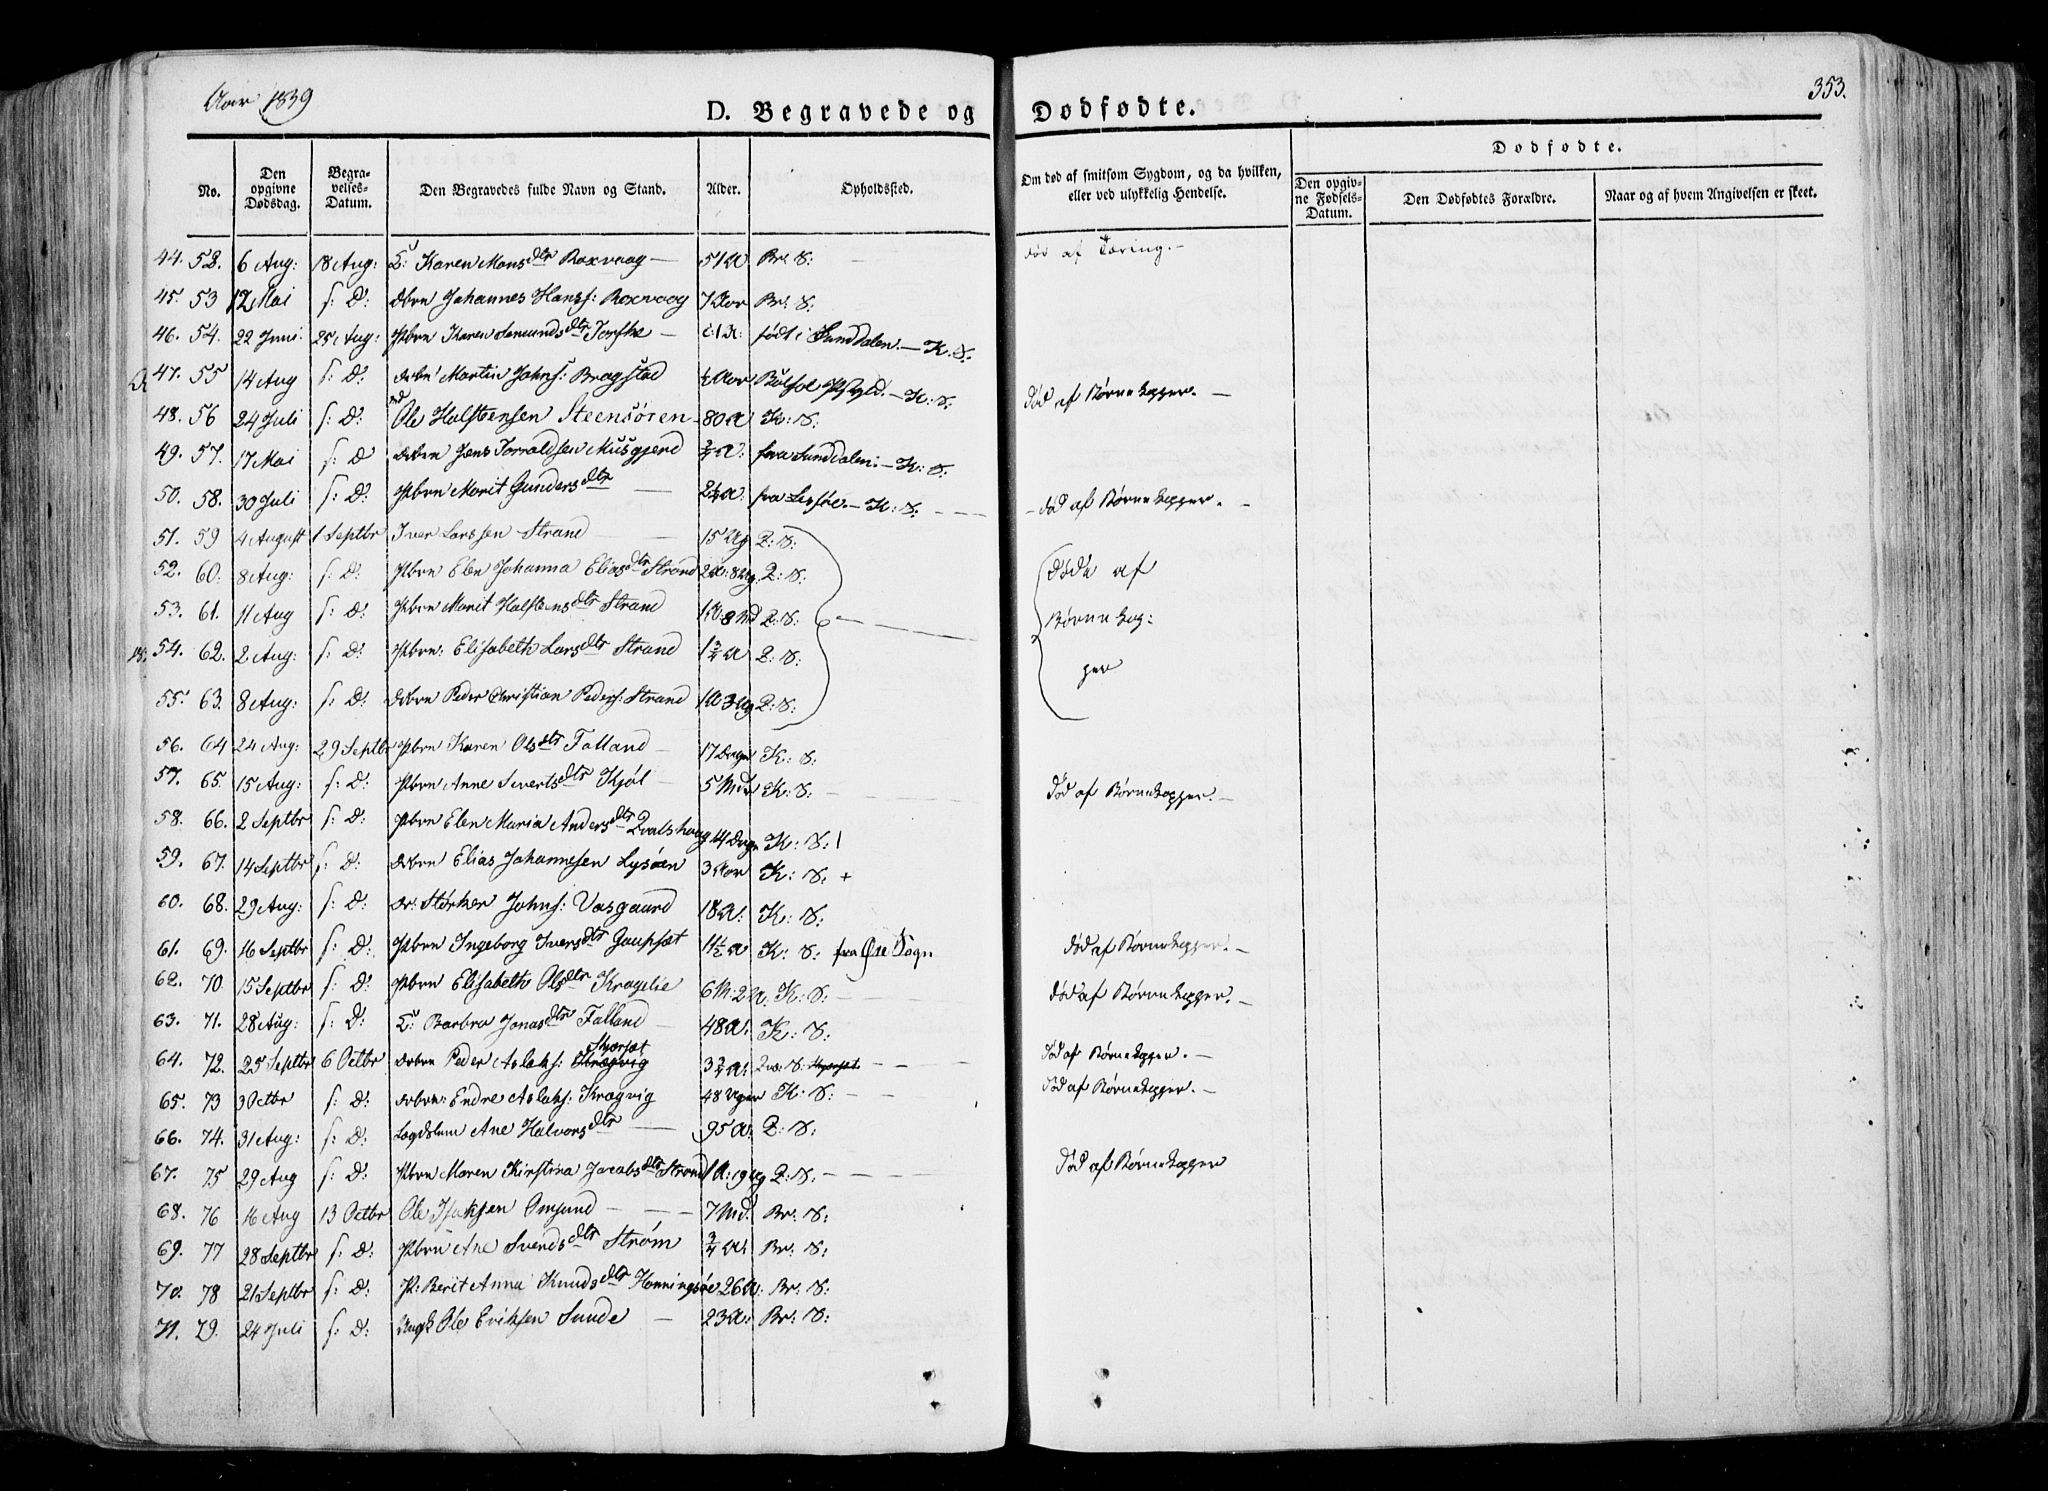 Aar 1839
353.
D. Begravede og Dødfødte.
No. Den opgivne Dødsdag. Begravelses-Datum. Den Begravedes fulde Navn og Stand. Alder. Opholdssted. Om død af smitsom Sygdom, og da hvilken, eller ved ulykkelig Hendelse. Dødfødte. Den opgivne Fødsels-Datum. Den Dødfødtes Forældre. Naar og af hvem Angivelsen er skeet.
44. 52. 6 Aug: 18 Aug: Karen Mons dtr Roxvaag — 51 A Br: S: død af Tæring. —
45. 53 12 Mai s: D: Dbrn Johannes Hanss: Roxvaag 7 Aar Br: S:
46. 54. 22 Juni 25 Aug: Pbrn Karen Semunds dtr — 1 A: født i Sunddalen. — K: S:
47. 55 14 Aug s: D: Drbrn Martin Johns: Bragstad ½ Aar Bolsøe — K: S: død af Børnekopper. —
48. 56 24 Juli s: D: Ole Halstensen Steensören 80 A K: S:
49. 57. 17 Mai s: D Drbrn Jens Torvaldsen Musgjerd A: fra Sunddalen: — K: S:
50. 58. 30 Juli s: D: Pbrn Marit Gunders dtr — 2½ A: fra Lesjøe. — K: S: — død af Børnekopper. —
51. 59 4 August 1 Septbr Iver Larssen Strand 15 Ug Q: S: døde af
52. 60. 8 Aug: s: D: Pbrn Elen Johanna Elias dtr Strand 2 A: 8 Ug Q: S:
53. 61. 11 Aug s: D: Pbrn Marit Halstens dtr Strand 1 A 8 Md Q: S: Børnekop:
54. 62. 2 Aug: s: D: Pbrn: Elisabeth Lars dtr Strand 1¾ A Q: S: per
55. 63. 8 Aug: s: D: Drbrn Peder Christian Peders: Strand 1 A 3 Ug Q: S:
56. 64 24 Aug: 29 Septbr Pbrn Karen Ols dtr Falland 17 Dage K: S:
57. 65. 15 Aug: s: D: Pbrn Anne Siverts dtr Kjöl — 5 Mdr K: S: død af Børnekopper. —
58. 66. 2 Septbr s: D: Pbrn Elen Maria Anders dtr Qvalshoug 14 Dage K: S:
59. 67. 14 Septbr s: D: Drbrn Elias Johannesen Lysöen 3 Aar K: S: +
60. 68. 29 Aug: s: D: Dr: Störker Johns: Vasgaard 18 A: K: S:
61. 69. 16 Septbr s: D: Pbrn Ingeborg Ivers dtr Gaupsæt ½ A K: S: fra Øre Sogn død af Børnekopper. —
62. 70. 15 Septbr s: D: Pbrn Elisabeth Ols dtr Kragelie 6 M: 2 A. K: S: — død af Børnekopper. —
63. 71. 28 Aug: s: D: Barbra Jonas dtr Falland — 48 A: K: S:
64. 72. 25 Septbr 6 Octbr Drbrn Peder Aslaks: Kragvig Skorset 3¾ A: Qv: S: — død af Børnekopper. —
65. 73 3 Octbr s: D: Drbrn: Endre Aslaks: Kragvig 48 Uger K: S: — død af Børnekopper. —
66. 74. 31 Aug: s: D: Lægdslem Ane Halvors dtr — 95 A: Q: S:
67. 75 29 Aug s: D: Pbrn Maren Kirstina Jacobs dtr Strand 1 A: 19 Ug Q: S: — død af Børnekopper
68. 76 16 Aug 13 Octbr Ole Isaksen Omsund — 7 Md. Br: S:
69. 77 28 Septbr s: D: Pbrn Ane Svends dtr Ström ¾ A: Br: S:
70. 78 21 Septbr s: D: P: Berit Anna Knuds dtr Henningsöe 26 A: Br: S:
71. 79. 24 Juli s: D: Ungk Ole Eriksen Sunde — 23 A: Br: S: